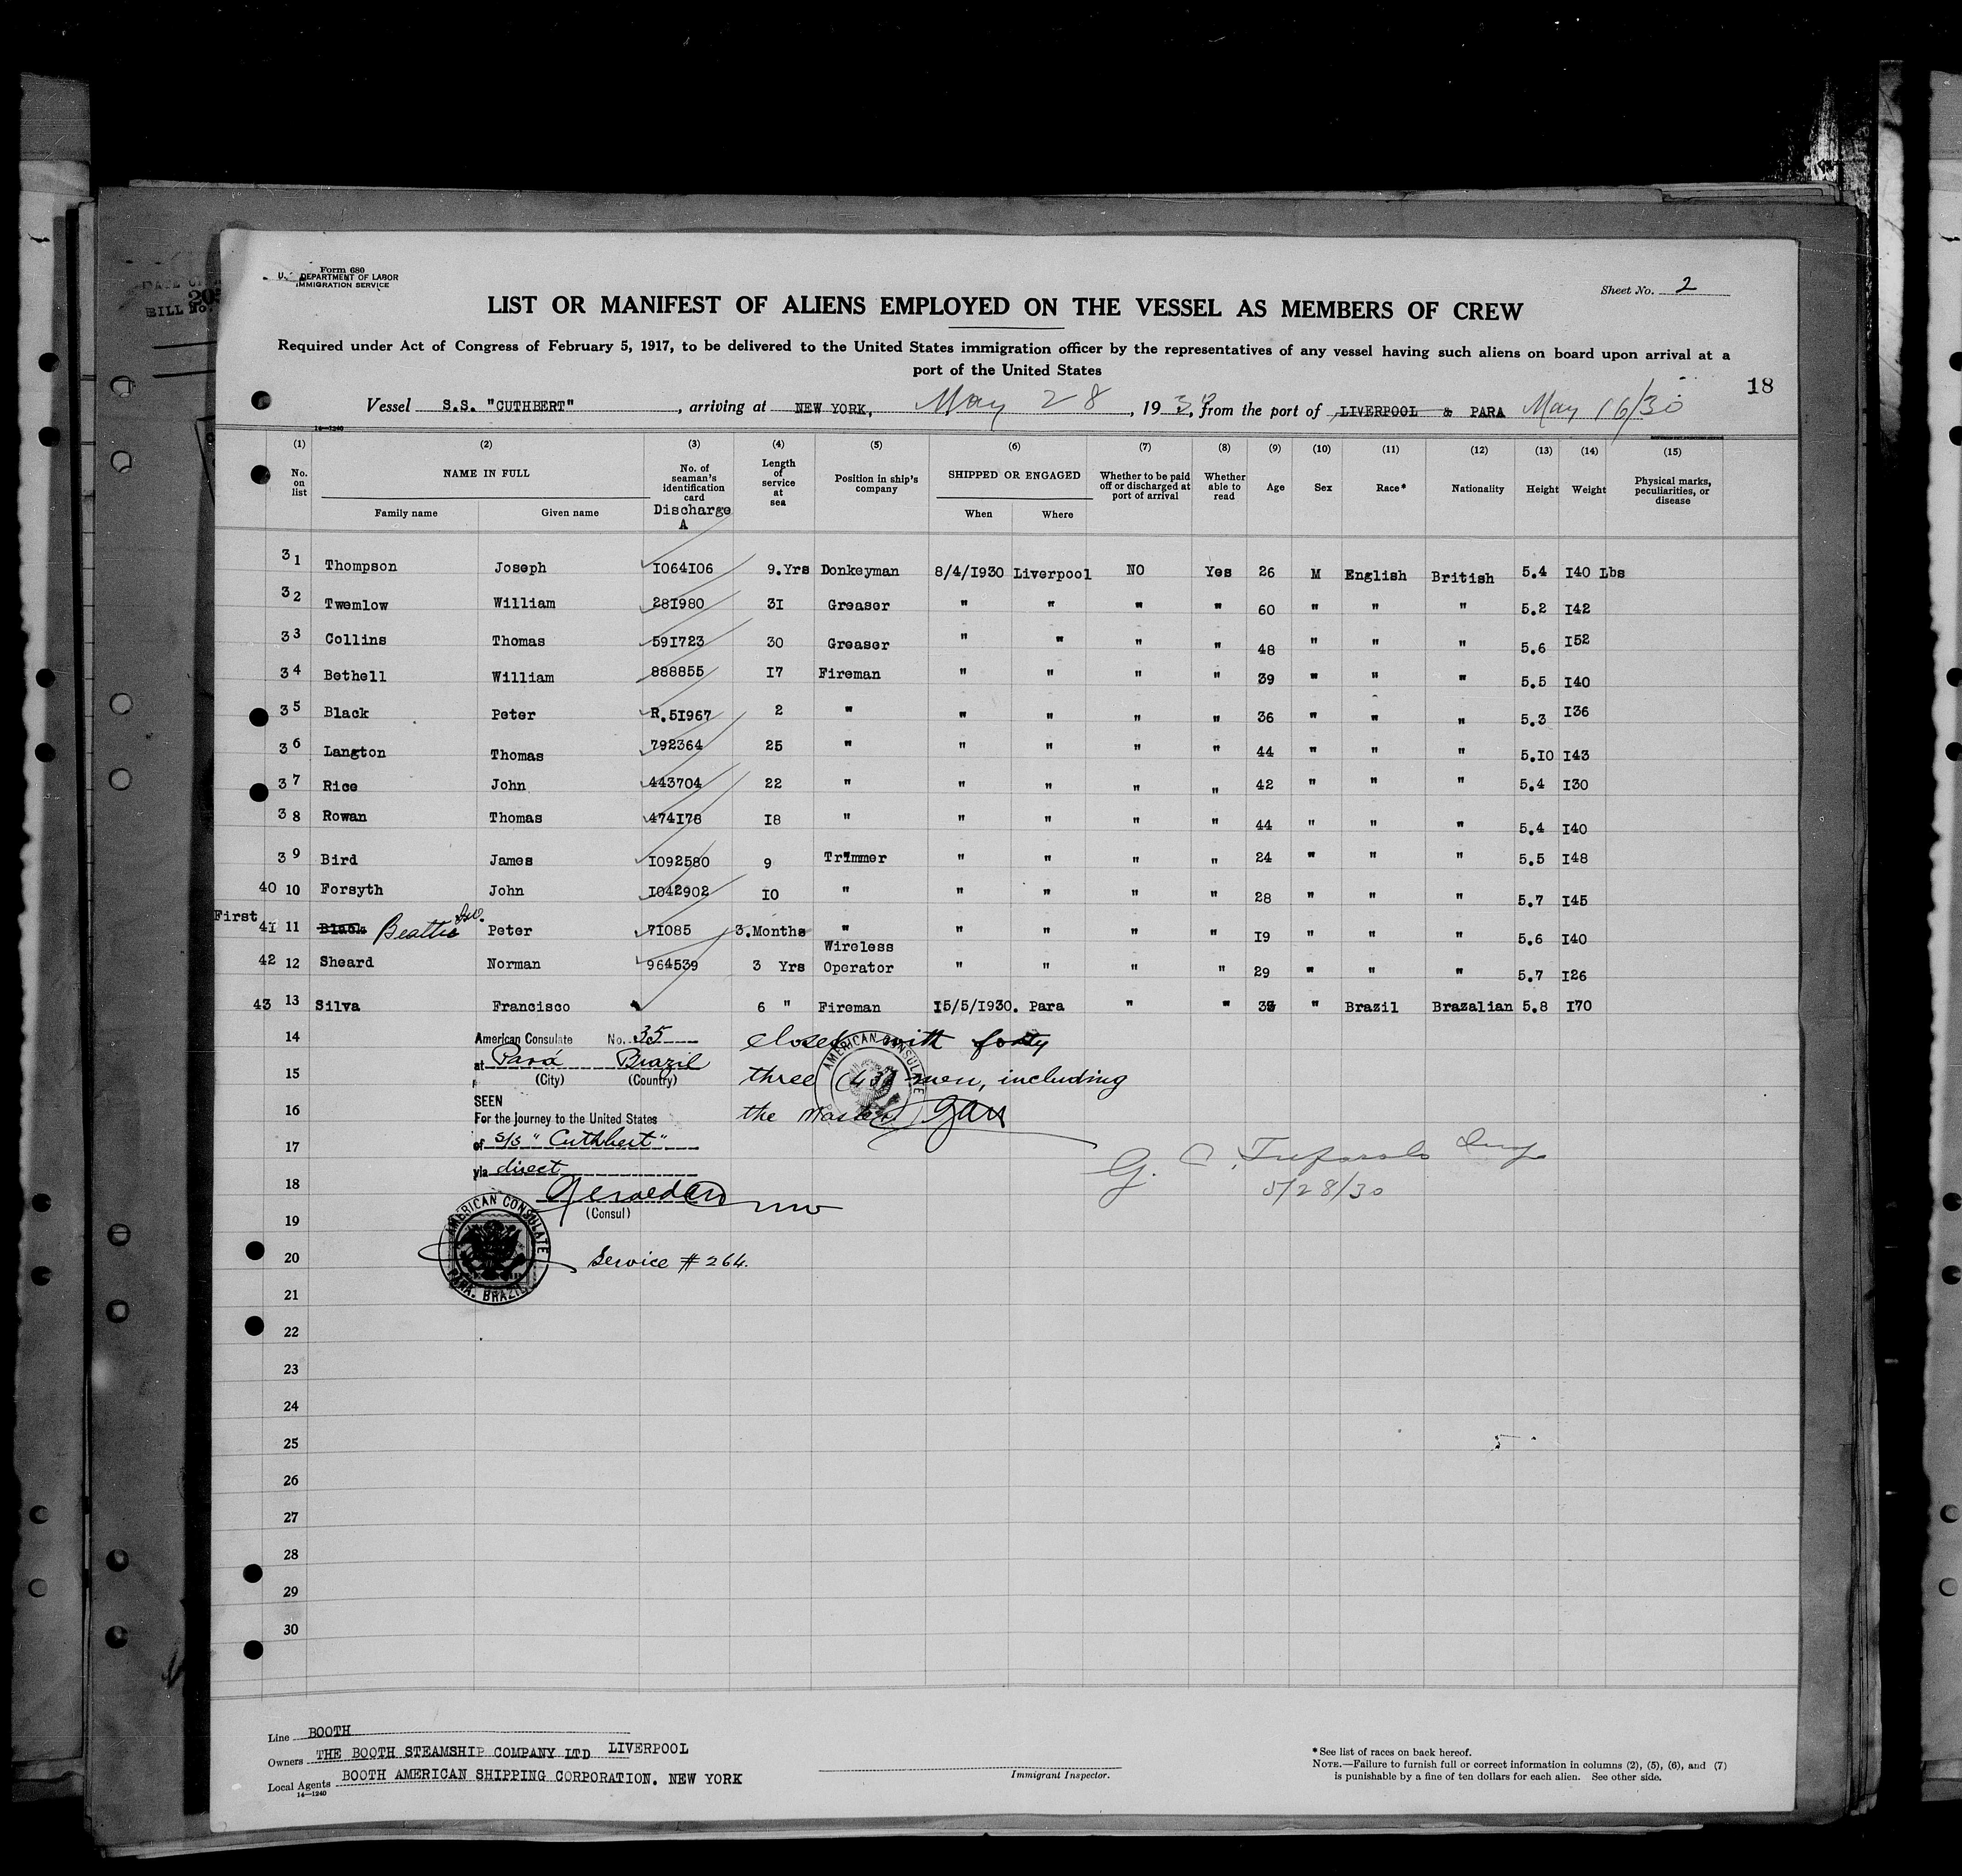 Form 680
U. S. DEPARTMENT OF LABOR
IMMIGRATION SERVICE
Sheet No. 2
LIST OR MANIFEST OF ALIENS EMPLOYED ON THE VESSEL AS MEMBERS OF CREW
Required under Act of Congress of February 5, 1917, to be delivered to the United States immigration officer by the representatives of any vessel having such aliens on board upon arrival at a
port of the United States
18
Vessel S.S. "CUTHBERT", arriving at NEW YORK, May 28, 1930, from the port of LIVERPOOL & PARA May 16/30
14—1240
(1) (2) (3) (4) (5) (6) (7) (8) (9) (10) (11) (12) (13) (14) (15)
No. on list NAME IN FULL Family name Given name No. of seaman's identification card Discharge A Length of service at sea Position in ship's company SHIPPED OR ENGAGED When Where Whether to be paid off or discharged at port of arrival Whether able to read Age Sex Race* Nationality Height Weight Physical marks, peculiarities, or disease
31 Thompson Joseph 1064106 9.Yrs Donkeyman 8/4/1930 Liverpool NO Yes 26 M English British 5.4 140 Lbs
32 Twemlow William 281980 31 Greaser " " " " 60 " " " 5.2 142
33 Collins Thomas 591723 30 Greaser " " " " 48 " " " 5.6 152
34 Bethell William 888855 17 Fireman " " " " 39 " " " 5.5 140
35 Black Peter R.51967 2 " " " " " 36 " " " 5.3 136
36 Langton Thomas 792364 25 " " " " " 44 " " " 5.10 143
37 Rice John 443704 22 " " " " " 42 " " " 5.4 130
38 Rowan Thomas 474178 18 " " " " " 44 " " " 5.4 140
39 Bird James 1092580 9 Trimmer " " " " 24 " " " 5.5 148
40 10 Forsyth John 1042902 10 " " " " " 28 " " " 5.7 145
First 41 11 Black Beattie Peter 71085 3.Months " " " " " 19 " " " 5.6 140
42 12 Sheard Norman 964539 3 Yrs Wireless Operator " " " " 29 " " " 5.7 126
43 13 Silva Francisco 6 " Fireman 15/5/1930. Para " " " Brazil Brazalian 5.8 170
14 American Consulate No. 35 closed with forty
at Pará Brazil
(City) (Country)
15 three (43) men, including
SEEN
16 For the journey to the United States the Master
17 of S/S "Cuthbert"
via direct
18
(Consul)
5/28/30
AMERICAN CONSULATE
AMERICAN CONSULATE
PARA, BRAZIL
19
20 Service # 264.
21
22
23
24
25
26
27
28
29
30
Line BOOTH
Owners THE BOOTH STEAMSHIP COMPANY LTD LIVERPOOL
Local Agents BOOTH AMERICAN SHIPPING CORPORATION. NEW YORK
14—1240
Immigrant Inspector.
*See list of races on back hereof.
NOTE.—Failure to furnish full or correct information in columns (2), (5), (6), and (7)
is punishable by a fine of ten dollars for each alien. See other side.